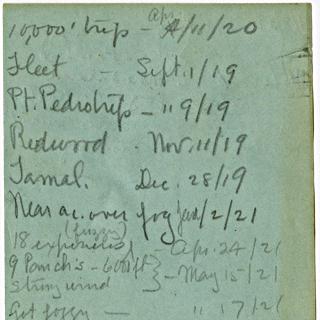 10,000' trip - Apr/11/20
Fleet - Sept. 1/19
Pt. Pedro trip - " 9/19
Redwood . Nov. 11/19
Tamal. Dec. 28/19
Near ac. over fog Jan/2/21
(fussy)
18 exposures - Apr. 24/21
9 Panch's - 6000 ft } - May 15-/21
strong wind
Got foggy - " 17/21